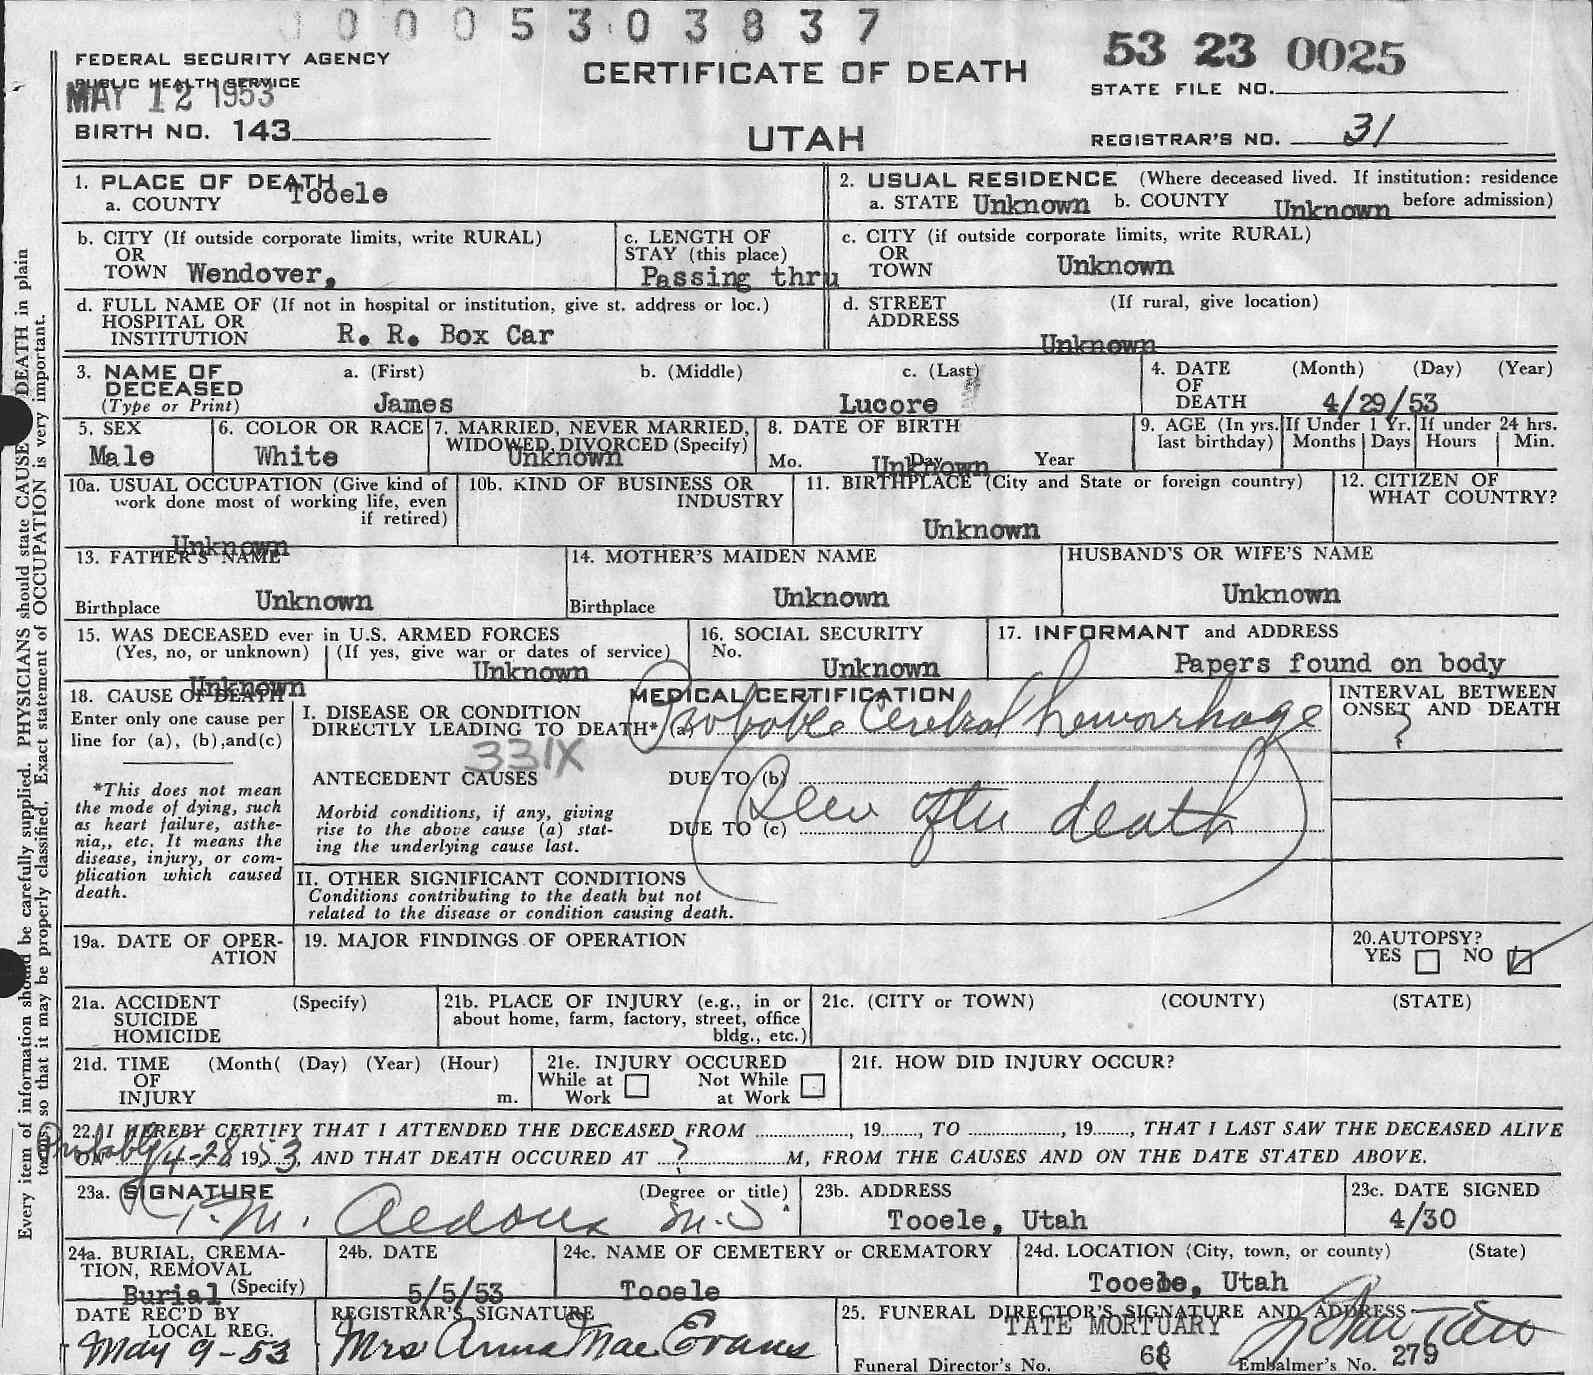 0005303837
FEDERAL SECURITY AGENCY
PUBLIC HEALTH SERVICE
MAY 12 1953
BIRTH NO. 143
CERTIFICATE OF DEATH
UTAH
53 23 0025
STATE FILE NO.
REGISTRAR'S NO. 31
Every item of information should be carefully supplied. PHYSICIANS should state CAUSE DEATH in plain
terms so that it may be properly classified. Exact statement of OCCUPATION is very important.
1. PLACE OF DEATH
a. COUNTY Tooele
2. USUAL RESIDENCE (Where deceased lived. If institution: residence
a. STATE Unknown b. COUNTY Unknown before admission)
b. CITY (If outside corporate limits, write RURAL)
OR
TOWN Wendover,
c. LENGTH OF
STAY (this place)
Passing thru
c. CITY (if outside corporate limits, write RURAL)
OR
TOWN Unknown
d. FULL NAME OF (If not in hospital or institution, give st. address or loc.)
HOSPITAL OR
INSTITUTION R. R. Box Car
d. STREET (If rural, give location)
ADDRESS
Unknown
3. NAME OF a. (First) b. (Middle) c. (Last)
DECEASED
(Type or Print) James Lucore
4. DATE (Month) (Day) (Year)
OF
DEATH 4/29/53
5. SEX
Male
6. COLOR OR RACE
White
7. MARRIED, NEVER MARRIED,
WIDOWED, DIVORCED (Specify)
Unknown
8. DATE OF BIRTH
Mo. Day Year
Unknown
9. AGE (In yrs.
last birthday)
If Under 1 Yr.
Months Days
If under 24 hrs.
Hours Min.
10a. USUAL OCCUPATION (Give kind of
work done most of working life, even
if retired)
Unknown
10b. KIND OF BUSINESS OR
INDUSTRY
11. BIRTHPLACE (City and State or foreign country)
Unknown
12. CITIZEN OF
WHAT COUNTRY?
13. FATHER'S NAME
Birthplace Unknown
14. MOTHER'S MAIDEN NAME
Birthplace Unknown
HUSBAND'S OR WIFE'S NAME
Unknown
15. WAS DECEASED ever in U.S. ARMED FORCES
(Yes, no, or unknown) (If yes, give war or dates of service)
Unknown Unknown
16. SOCIAL SECURITY
No.
Unknown
17. INFORMANT and ADDRESS
Papers found on body
18. CAUSE OF DEATH
Enter only one cause per
line for (a), (b),and(c)
*This does not mean
the mode of dying, such
as heart failure, asthe-
nia,, etc. It means the
disease, injury, or com-
plication which caused
death.
MEDICAL CERTIFICATION
I. DISEASE OR CONDITION
DIRECTLY LEADING TO DEATH* (a) Probable Cerebral hemorrhage
331X
ANTECEDENT CAUSES DUE TO (b)
Morbid conditions, if any, giving
rise to the above cause (a) stat-
ing the underlying cause last.
DUE TO (c)
Seen after death
II. OTHER SIGNIFICANT CONDITIONS
Conditions contributing to the death but not
related to the disease or condition causing death.
INTERVAL BETWEEN
ONSET AND DEATH
?
19a. DATE OF OPER-
ATION
19. MAJOR FINDINGS OF OPERATION
20.AUTOPSY?
YES NO
21a. ACCIDENT (Specify)
SUICIDE
HOMICIDE
21b. PLACE OF INJURY (e.g., in or
about home, farm, factory, street, office
bldg., etc.)
21c. (CITY or TOWN) (COUNTY) (STATE)
21d. TIME (Month( (Day) (Year) (Hour)
OF
INJURY m.
21e. INJURY OCCURED
While at Not While
Work at Work
21f. HOW DID INJURY OCCUR?
22. I HEREBY CERTIFY THAT I ATTENDED THE DECEASED FROM , 19 , TO , 19 , THAT I LAST SAW THE DECEASED ALIVE
Probably
ON 4-28, 1953, AND THAT DEATH OCCURED AT ? M, FROM THE CAUSES AND ON THE DATE STATED ABOVE.
23a. SIGNATURE (Degree or title)
M.D
23b. ADDRESS
Tooele, Utah
23c. DATE SIGNED
4/30
24a. BURIAL, CREMA-
TION, REMOVAL
Burial (Specify)
24b. DATE
5/5/53
24c. NAME OF CEMETERY or CREMATORY
Tooele
24d. LOCATION (City, town, or county) (State)
Tooele, Utah
DATE REC'D BY
LOCAL REG.
May 9-53
REGISTRAR'S SIGNATURE
Mrs Anna Mae Evans
25. FUNERAL DIRECTOR'S SIGNATURE AND ADDRESS
TATE MORTUARY
Funeral Director's No. 68 Embalmer's No. 279